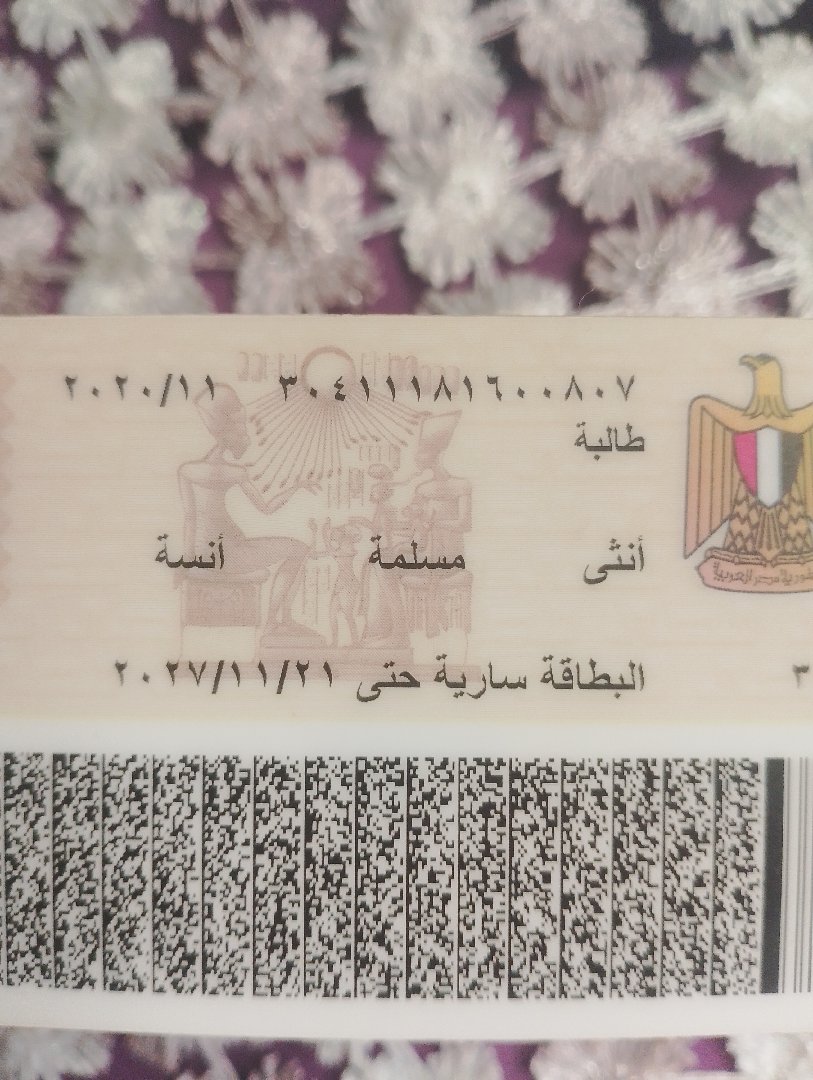 ٣٠٤١١١٨١٦٠٠٨٠٧ ٢٠٢٠/١١
طالبة
أنثى مسلمة أنسة
البطاقة سارية حتى ٢٠٢٧/١١/٢١
٣